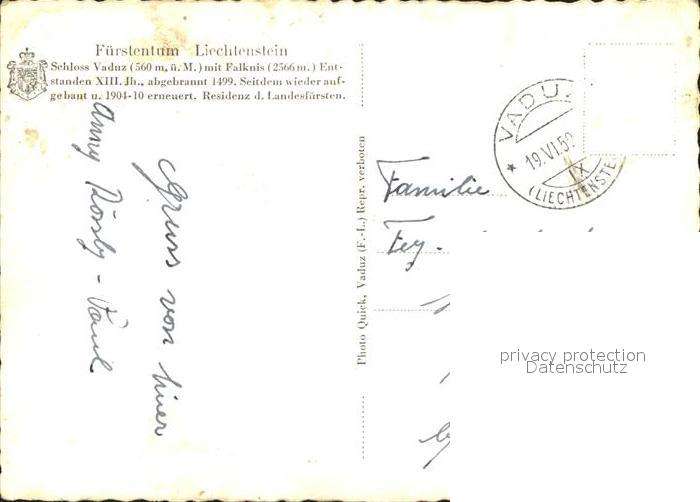 Fürstentum Liechtenstein
Schloss Vaduz (560 m, ü. M.) mit Falknis (2566 m.) Ent-
standen XIII. Jh., abgebrannt 1499. Seitdem wieder auf-
gebaut u. 1904-10 erneuert. Residenz d. Landesfürsten.
Gruss von hier
Anny
Photo Quick, Vaduz (F.-L.) Repr. verboten
VADUZ
19.VI.59
IX
(LIECHTENSTE
Familie
Fey.
privacy protection
Datenschutz